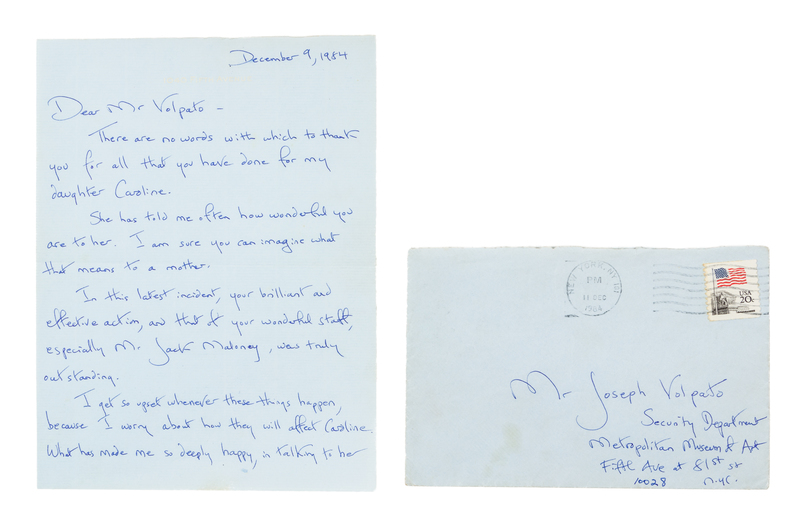 December 9, 1984
Dear Mr Volpato -
There are no words with which to thank
you for all that you have done for my
daughter Caroline.
She has told me often how wonderful you
are to her. I am sure you can imagine what
that means to a mother.
In this latest incident, your brilliant and
effective action, and that of your wonderful staff,
especially Mr. Jack Maloney, was truly
outstanding.
I get so upset whenever these things happen,
because I worry about how they will affect Caroline.
What has made me so deeply happy, in talking to her
NEW YORK, NY
PM
11 DEC
1984
USA
20c
Mr Joseph Volpato
Security Department
Metropolitan Museum of Art
Fifth Ave at 81st st
10028 N.Y.C.